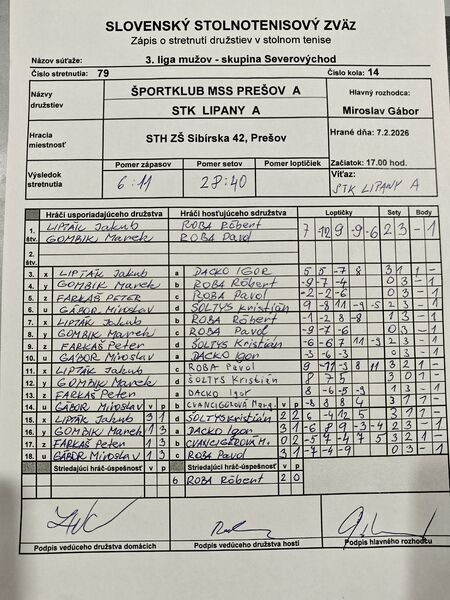 SLOVENSKÝ STOLNOTENISOVÝ ZVÄZ
Zápis o stretnutí družstiev v stolnom tenise
Názov súťaže: 3. liga mužov - skupina Severovýchod
Číslo stretnutia: 79 Číslo kola: 14
Názvy družstiev ŠPORTKLUB MSS PREŠOV A Hlavný rozhodca:
STK LIPANY A Miroslav Gábor
Hracia miestnosť STH ZŠ Sibírska 42, Prešov Hrané dňa: 7.2.2026
Výsledok stretnutia Pomer zápasov Pomer setov Pomer loptičiek Začiatok: 17.00 hod.
6:11 28:40 Víťaz: STK LIPANY A
Hráči usporiadajúceho družstva Hráči hosťujúceho sdružstva Loptičky Sety Body
1. štv. LIPTÁK Jakub ROBA Róbert 7 -12 9 -9 -6 2 3 - 1
GOMBIK Marek ROBA Pavol
2. štv.
3. x LIPTÁK Jakub a DACKO IGOR 5 5 -7 8 3 1 1 -
4. y GOMBIK Marek b ROBA Róbert -9 -7 -4 0 3 - 1
5. z FARKAŠ PETER c ROBA Pavol -2 -2 -6 0 3 - 1
6. u GÁBOR Miroslav d ŠOLTYS Kristián 9 -8 11 -9 -5 2 3 - 1
7. x LIPTÁK Jakub b ROBA Róbert -1 -2 8 -8 1 3 - 1
8. y GOMBIK Marek c ROBA Pavol -9 -7 -6 0 3 - 1
9. z FARKAŠ Peter d ŠOLTYS Kristián -6 -6 7 11 -9 2 3 - 1
10. u GÁBOR Miroslav a DACKO Igor -3 -6 -3 0 3 - 1
11. x LIPTÁK Jakub c ROBA Pavol 9 -11 -3 8 11 3 2 1 -
12. y GOMBIK Marek d ŠOLTYS Kristián 8 7 5 3 0 1 -
13. z FARKAŠ Peter a DACKO Igor 8 -6 -5 -9 1 3 - 1
14. u GÁBOR Miroslav v p b v p -8 8 8 4 3 1 1 -
15. x LIPTÁK Jakub 3 1 d ŠOLTYS Kristián 2 2 6 -4 12 5 3 1 1 -
16. y GOMBIK Marek 1 3 a DACKO Igor 3 1 -6 8 9 -3 -4 2 3 - 1
17. z FARKAŠ Peter 1 3 b CVANCIGEROVÁ M. 0 2 -5 7 -4 7 5 3 2 1 -
18. u GÁBOR Miroslav 1 3 c ROBA Pavol 3 1 -7 -4 -9 0 3 - 1
Striedajúci hráč-úspešnosť v p Striedajúci hráč-úspešnosť v p
b ROBA Róbert 2 0
Podpis vedúceho družstva domácich Podpis vedúceho družstva hostí Podpis hlavného rozhodcu